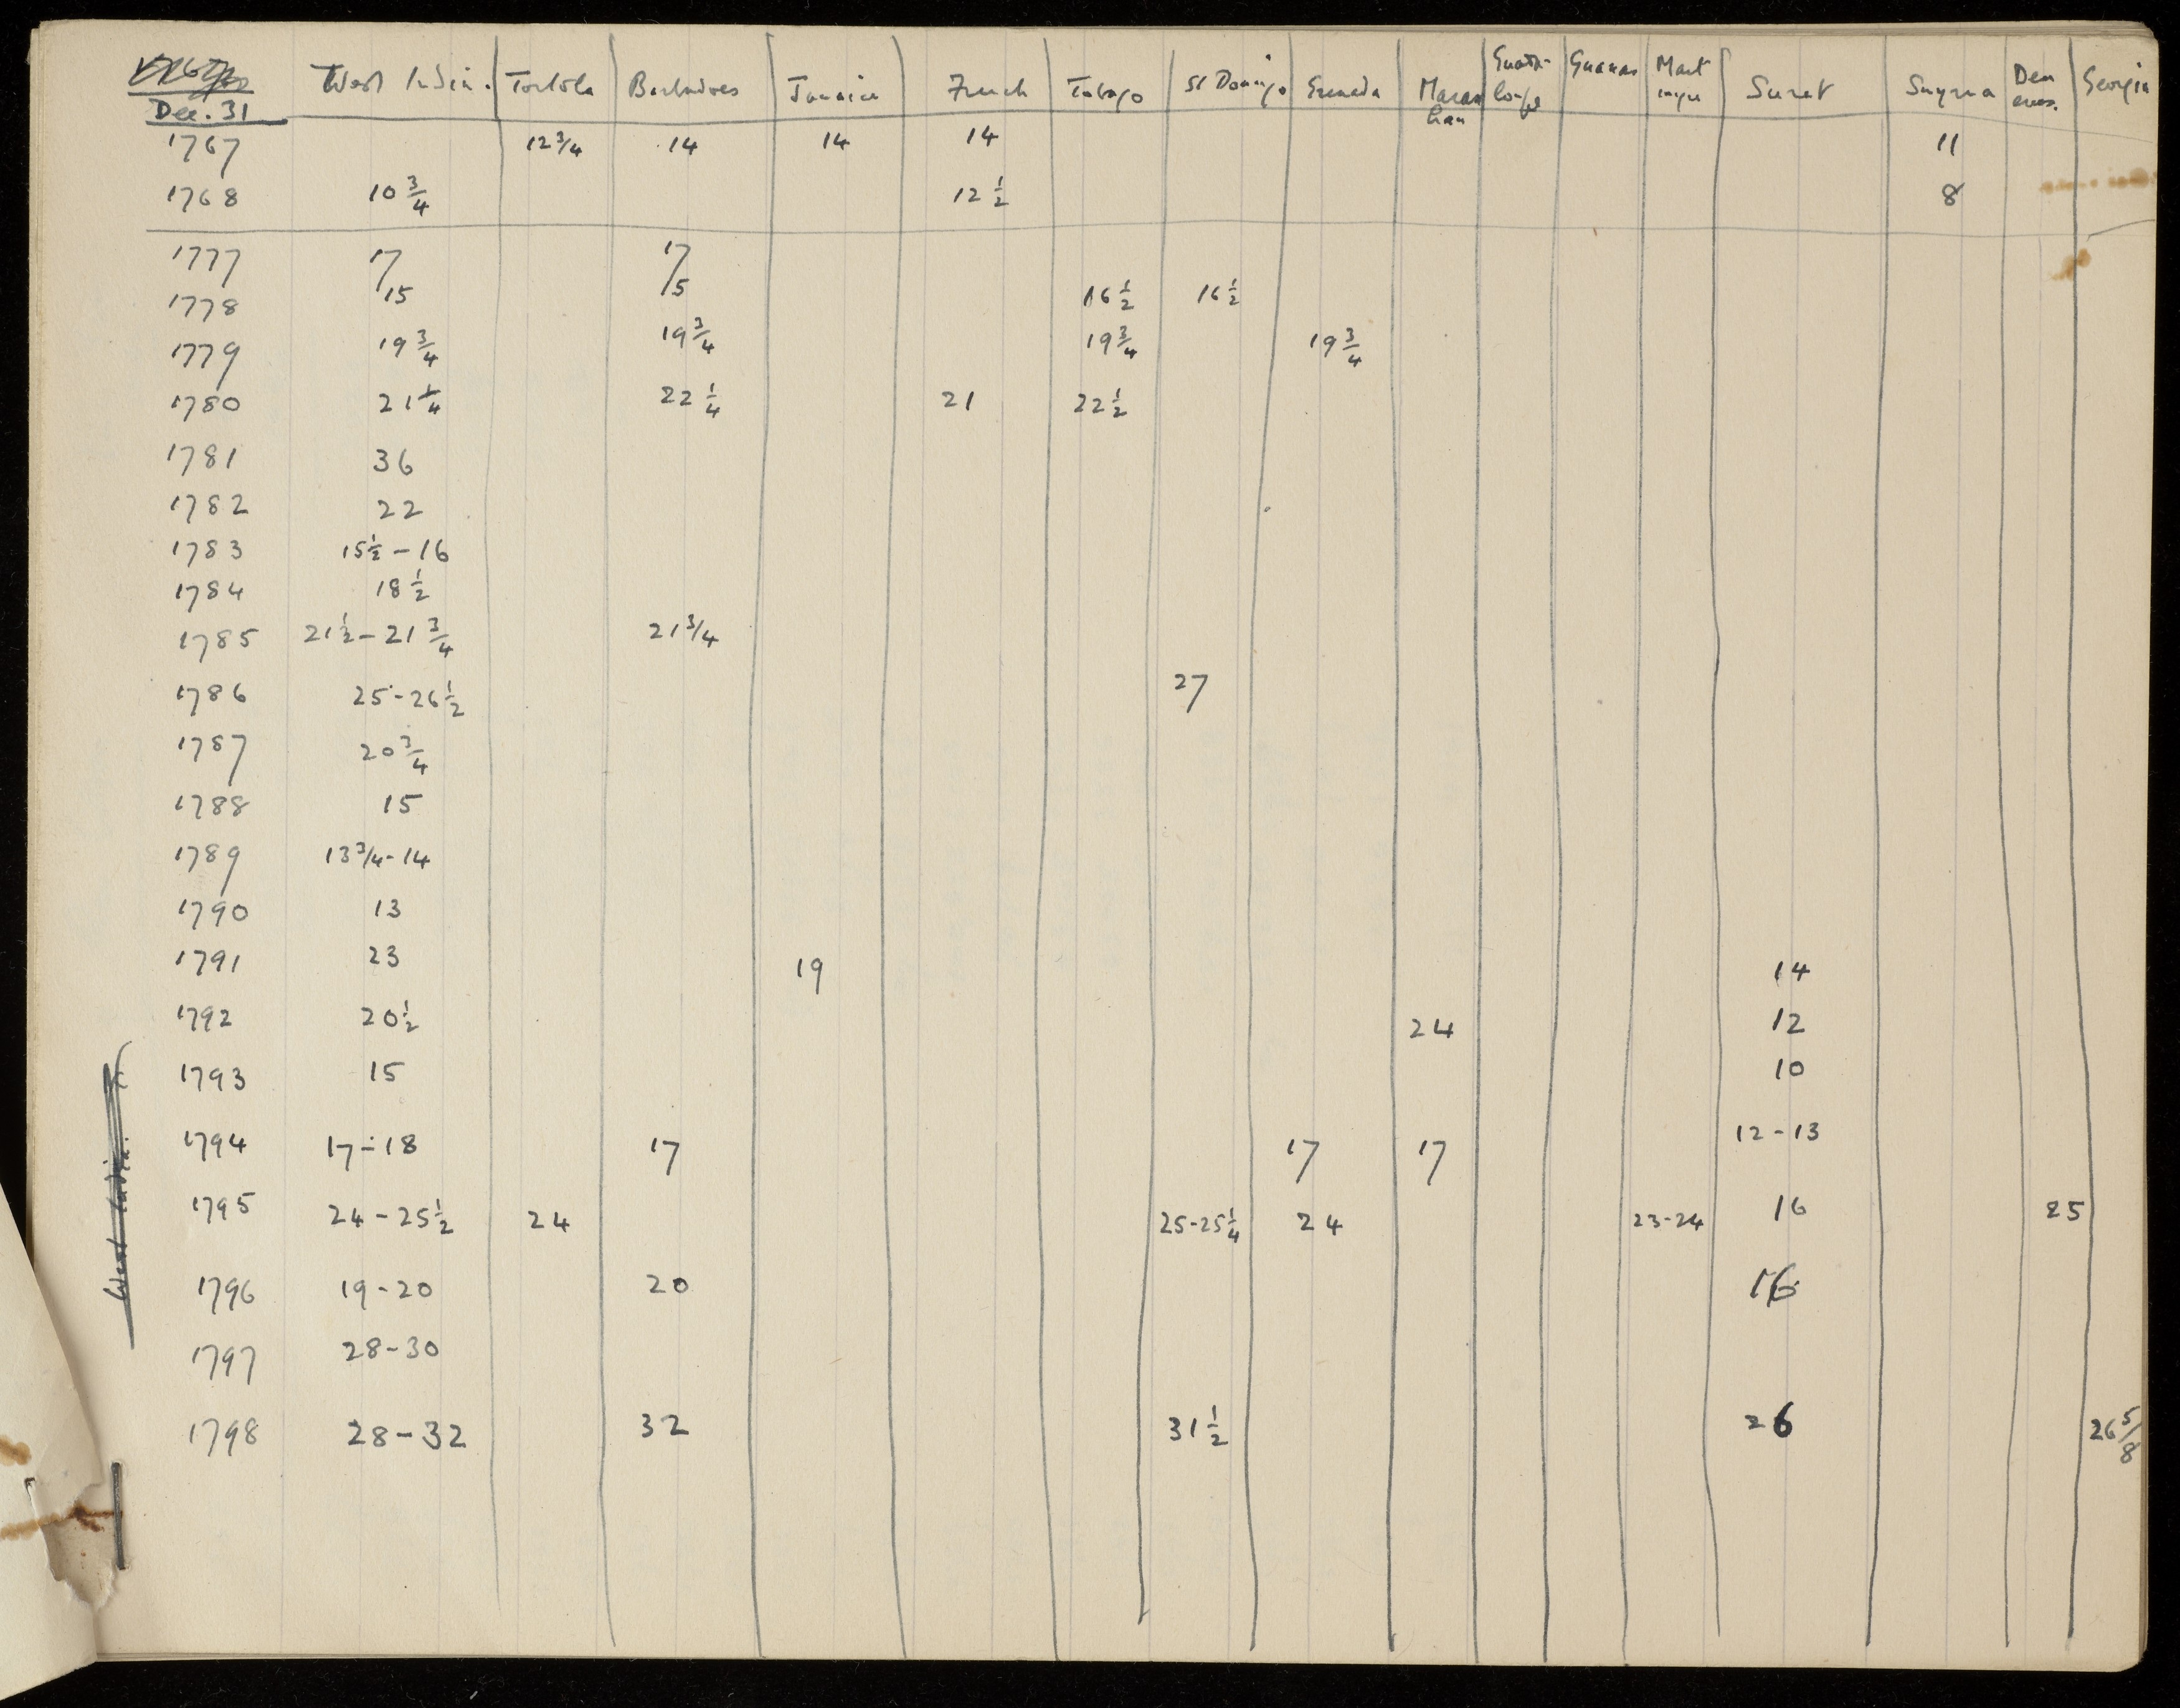 Dec. 31 West Indian. Tortola Barbadoes Jamaica French Tobago St Domingo Grenada Maran han Guada- loupe Guanas Mart inque Surat Smyrna Dem erar. Georgia
1767 12 3/4 14 14 14 11
1768 10 3/4 12 1/2 8
1777 17 17
1778 15 15 16 1/2 16 1/2
1779 19 3/4 19 3/4 19 3/4 19 3/4
1780 21 1/4 22 1/4 21 22 1/2
1781 36
1782 22
1783 15 1/2 - 16
1784 18 1/2
1785 21 1/2 - 21 3/4 21 3/4
1786 25 - 26 1/2 27
1787 20 3/4
1788 15
1789 13 3/4 - 14
1790 13
1791 23 19 14
1792 20 1/2 24 12
1793 15 10
1794 17 - 18 17 17 17 12 - 13
1795 24 - 25 1/2 24 25 - 25 1/4 24 23 - 24 16 25
1796 19 - 20 20 16
1797 28 - 30
1798 28 - 32 32 31 1/2 26 26 5/8
West Indian